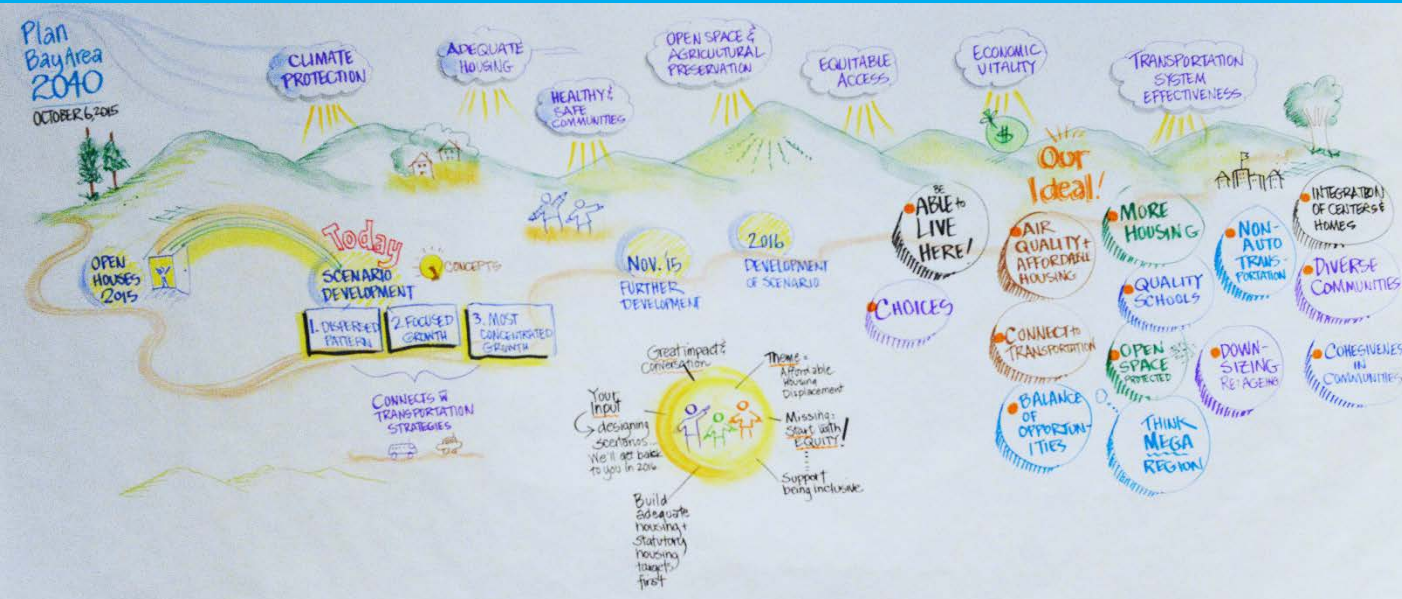 Plan
Bay Area
2040
OCTOBER 6, 2015
CLIMATE
PROTECTION
ADEQUATE
HOUSING
HEALTHY &
SAFE
COMMUNITIES
OPEN SPACE &
AGRICULTURAL
PRESERVATION
EQUITABLE
ACCESS
ECONOMIC
VITALITY
$
TRANSPORTATION
SYSTEM
EFFECTIVENESS
OPEN
HOUSES
2015
Today
SCENARIO
DEVELOPMENT
CONCEPTS
1. DISPERSED
PATTERN
2. FOCUSED
GROWTH
3. MOST
CONCENTRATED
GROWTH
CONNECTS W
TRANSPORTATION
STRATEGIES
NOV. '15
FURTHER
DEVELOPMENT
2016
DEVELOPMENT
OF SCENARIO
Great impact &
conversation
Theme =
Affordable
Housing
Displacement
Missing:
Start with
EQUITY!
Support
being inclusive
Build
adequate
housing +
statutory
housing
targets
first
Your
Input
designing
scenarios
We'll get back
to you in 2016
Our
Ideal!
BE
ABLE to
LIVE
HERE!
CHOICES
AIR
QUALITY +
AFFORDABLE
HOUSING
CONNECT to
TRANSPORTATION
BALANCE
OF
OPPORTUN-
ITIES
MORE
HOUSING
QUALITY
SCHOOLS
OPEN
SPACE
PROTECTED
THINK
MEGA
REGION
NON-
AUTO
TRANS-
PORTATION
DOWN-
SIZING
RE: AGEING
INTEGRATION
OF CENTERS &
HOMES
DIVERSE
COMMUNITIES
COHESIVENES
IN
COMMUNITIES